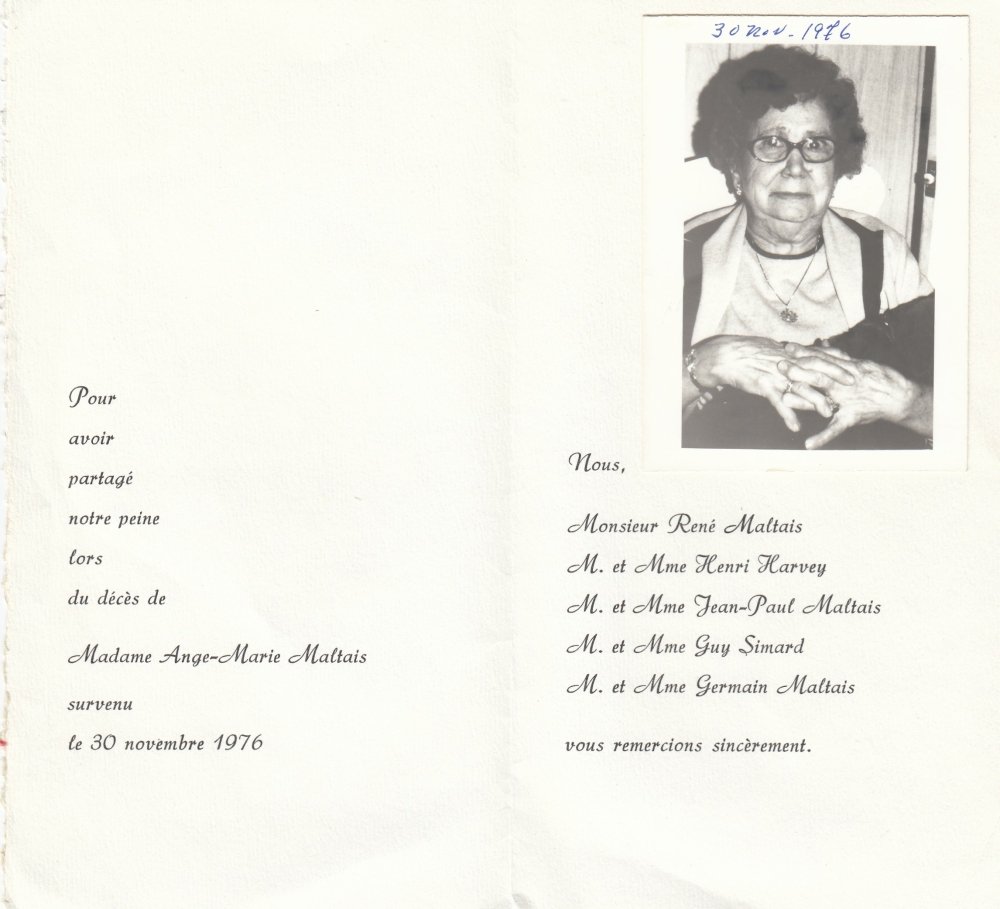 Pour
avoir
partagé
notre peine
lors
du décès de
Madame Ange-Marie Maltais
survenu
le 30 novembre 1976
30 Nov. 1976
Nous,
Monsieur René Maltais
M. et Mme Henri Harvey
M. et Mme Jean-Paul Maltais
M. et Mme Guy Simard
M. et Mme Germain Maltais
vous remercions sincèrement.